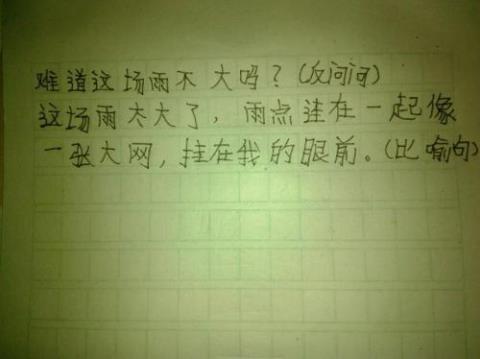 难道这场雨不大吗？(反问问)
这场雨太大了，雨点连在一起像
一张大网，挂在我的眼前。(比喻句)